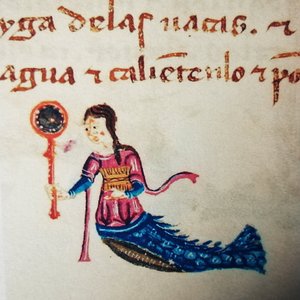 yga delas uacas. ⁊
agua ⁊ caliẽtenlo ⁊ po